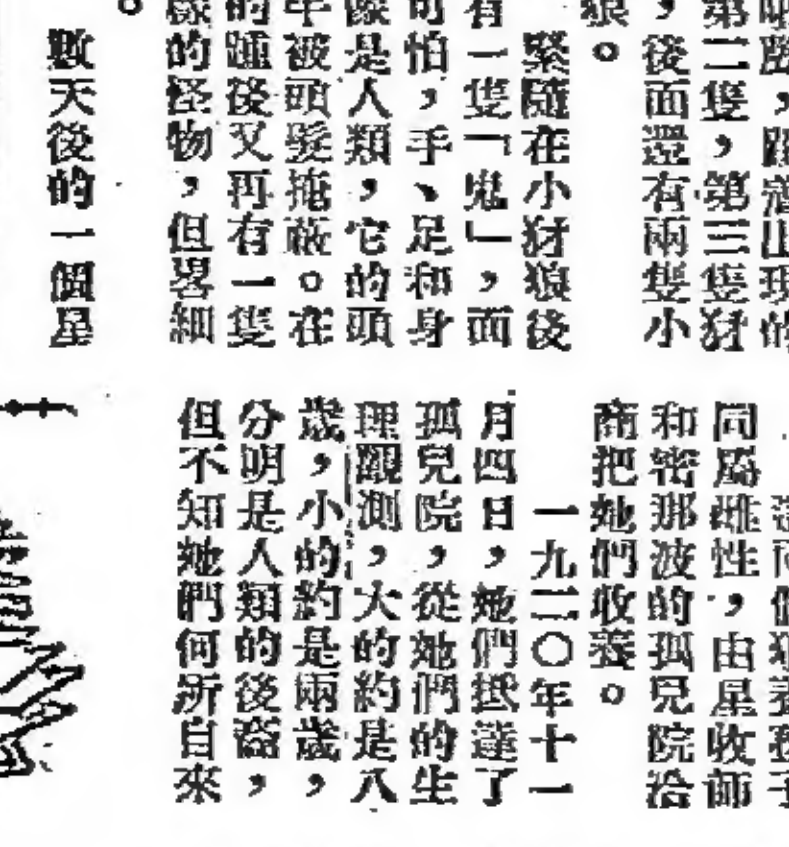 第二隻,第三隻豺
,後面還有兩隻小
狼。
緊隨在小豺狼後
有一隻「鬼」,面
可怕,手、足和身
像是人類,它的頭
被頭髮掩蔽。在
的踵後又再有一隻
樣的怪物,但畧細
。
數天後的一個星
同屬雌性,由星收師
和密那波的孤兒院洽
商把她們收養。
一九二〇年十一
月四日,她們抵達了
孤兒院,從她們的生
理觀測,大的約是八
歲,小的約是兩歲,
分明是人類的後裔,
但不知她們何所自來